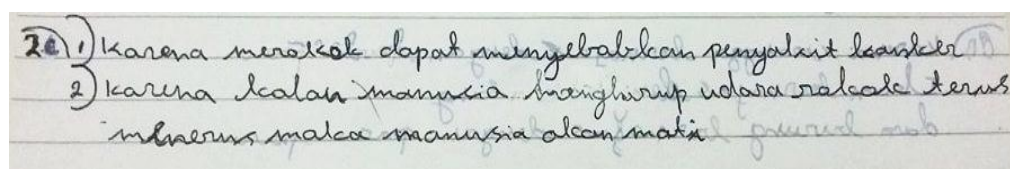 2c 1) Karena merokok dapat menyebabkan penyakit kanker
2) karena kalau manusia menghirup udara rokok terus
menerus maka manusia akan mati